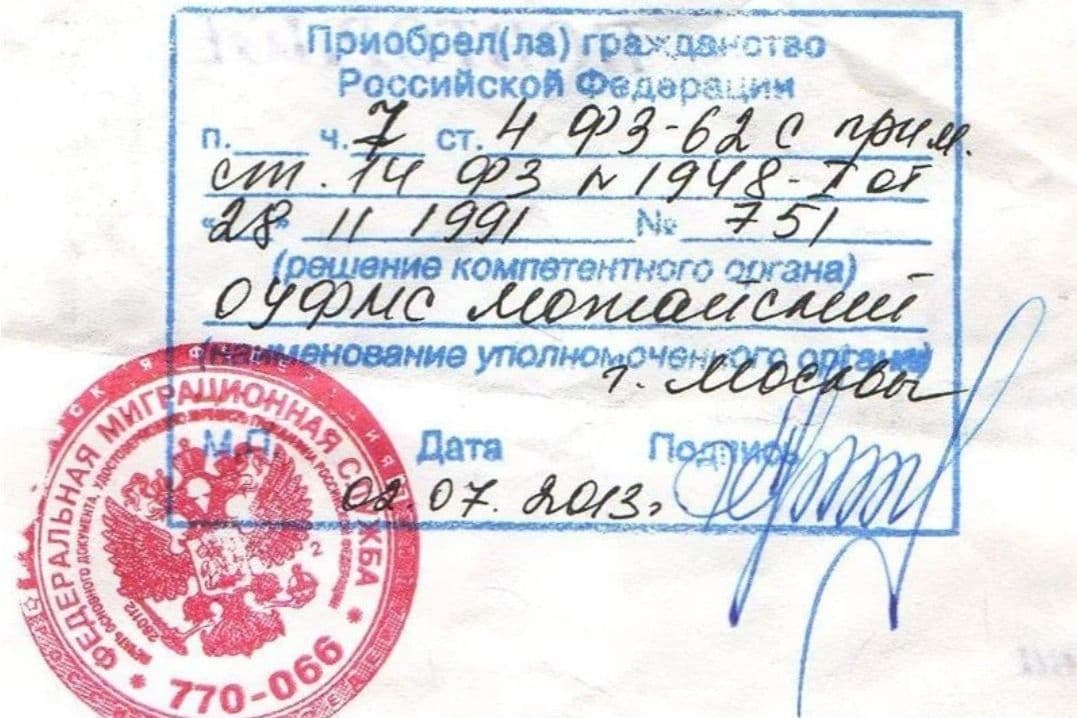 Приобрел(ла) гражданство
Российской Федерации
п. ___ ч. 7 ст. 4 ФЗ-62 с прим.
ст. 14 ФЗ N 1948-I от
"28" 11 1991 № 751
(решение компетентного органа)
ОУФМС Можайский
(наименование уполномоченного органа)
г. Москвы
М.П. Дата Подпись
02.07.2013г
ФЕДЕРАЛЬНАЯ МИГРАЦИОННАЯ СЛУЖБА
770-066
2